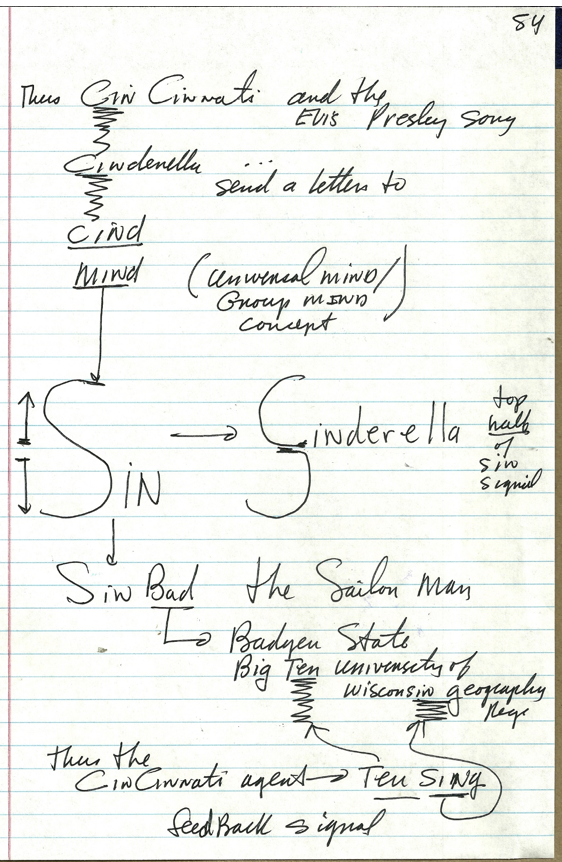 84
Thus Cin Cinnati and the
Elvis Presley song
Cinderella ...
send a letters to
CiNd
MiNd
(universal mind/
Group MIND
concept)
SiN → Sinderella
top
half
of
sin
signal
Sin Bad the Sailor Man
Badger State
Big Ten University of
Wisconsin geography
thus the
CinCinnati agent → Ten Sing
feedBack signal